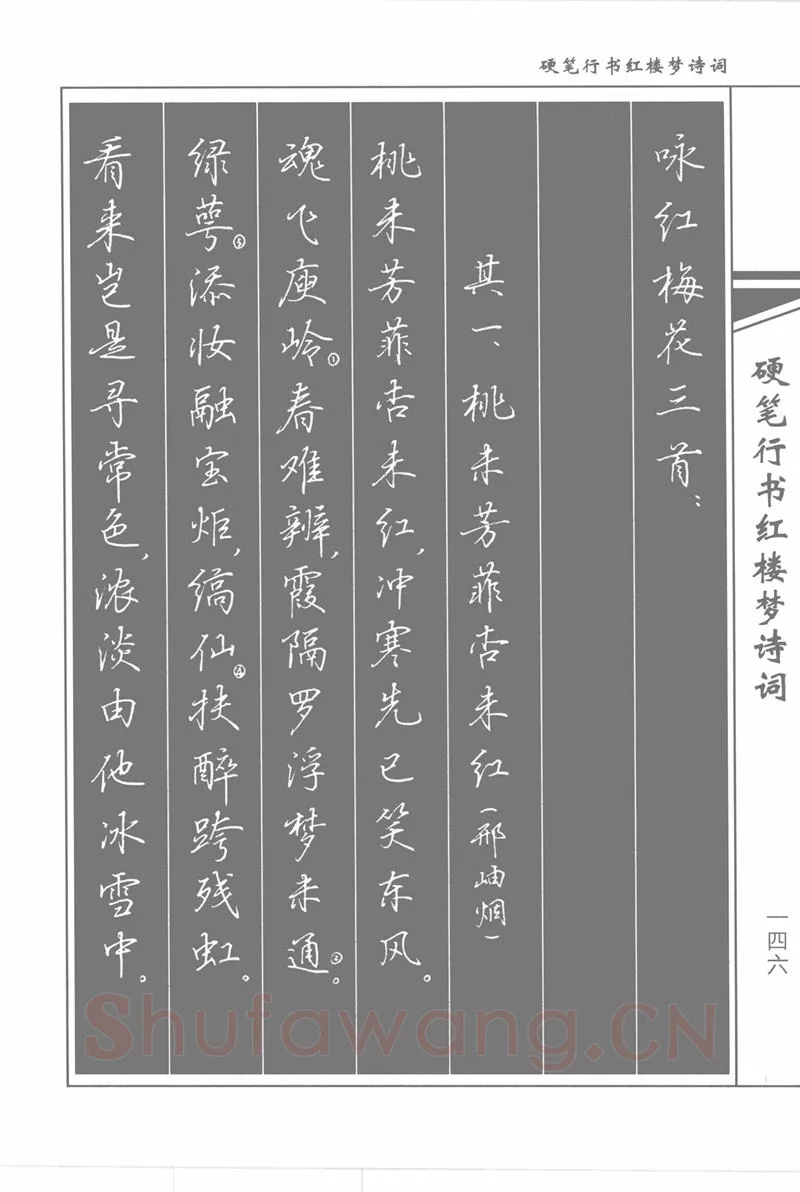 硬笔行书红楼梦诗词
咏红梅花三首：
其一、桃未芳菲杏未红（邢岫烟）
桃未芳菲杏未红，冲寒先已笑东风。
魂飞庾岭①春难辨，霞隔罗浮梦未通②。
绿萼③添妆融宝炬，缟仙④扶醉跨残虹。
看来岂是寻常色，浓淡由他冰雪中。
硬笔行书红楼梦诗词
一四六
Shufawang.CN